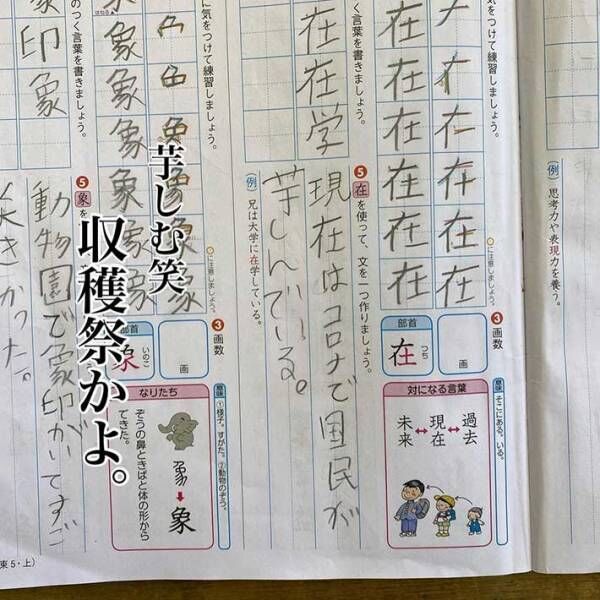 (例) 思考力や表現力を養う。
気をつけて練習しましょう。
に注意しましょう。
在
在
在
在
在
在
在
在
在
在
3 画数
画
部首
在
つち
意味 そこにある。いる。
対になる言葉
過去↔現在↔未来
のつく言葉を書きましょう。
在
在学
5 在を使って、文を一つ作りましょう。
(例) 兄は大学に在学している。
現在はコロナで国民が
芋しんいている。
に気をつけて練習しましょう。
に注意しましょう。
象
象
象
象
象
象
3 画数
画
部首
象
いのこ
意味 ①様子。すがた。②動物のぞう。
なりたち
象
ぞうの鼻ときばと体の形からできた。
のつく言葉を書きましょう。
象
印象
5 象を
動物園で象印がいてすご
大きかった。
東5・上)
芋しむ笑
収穫祭かよ。